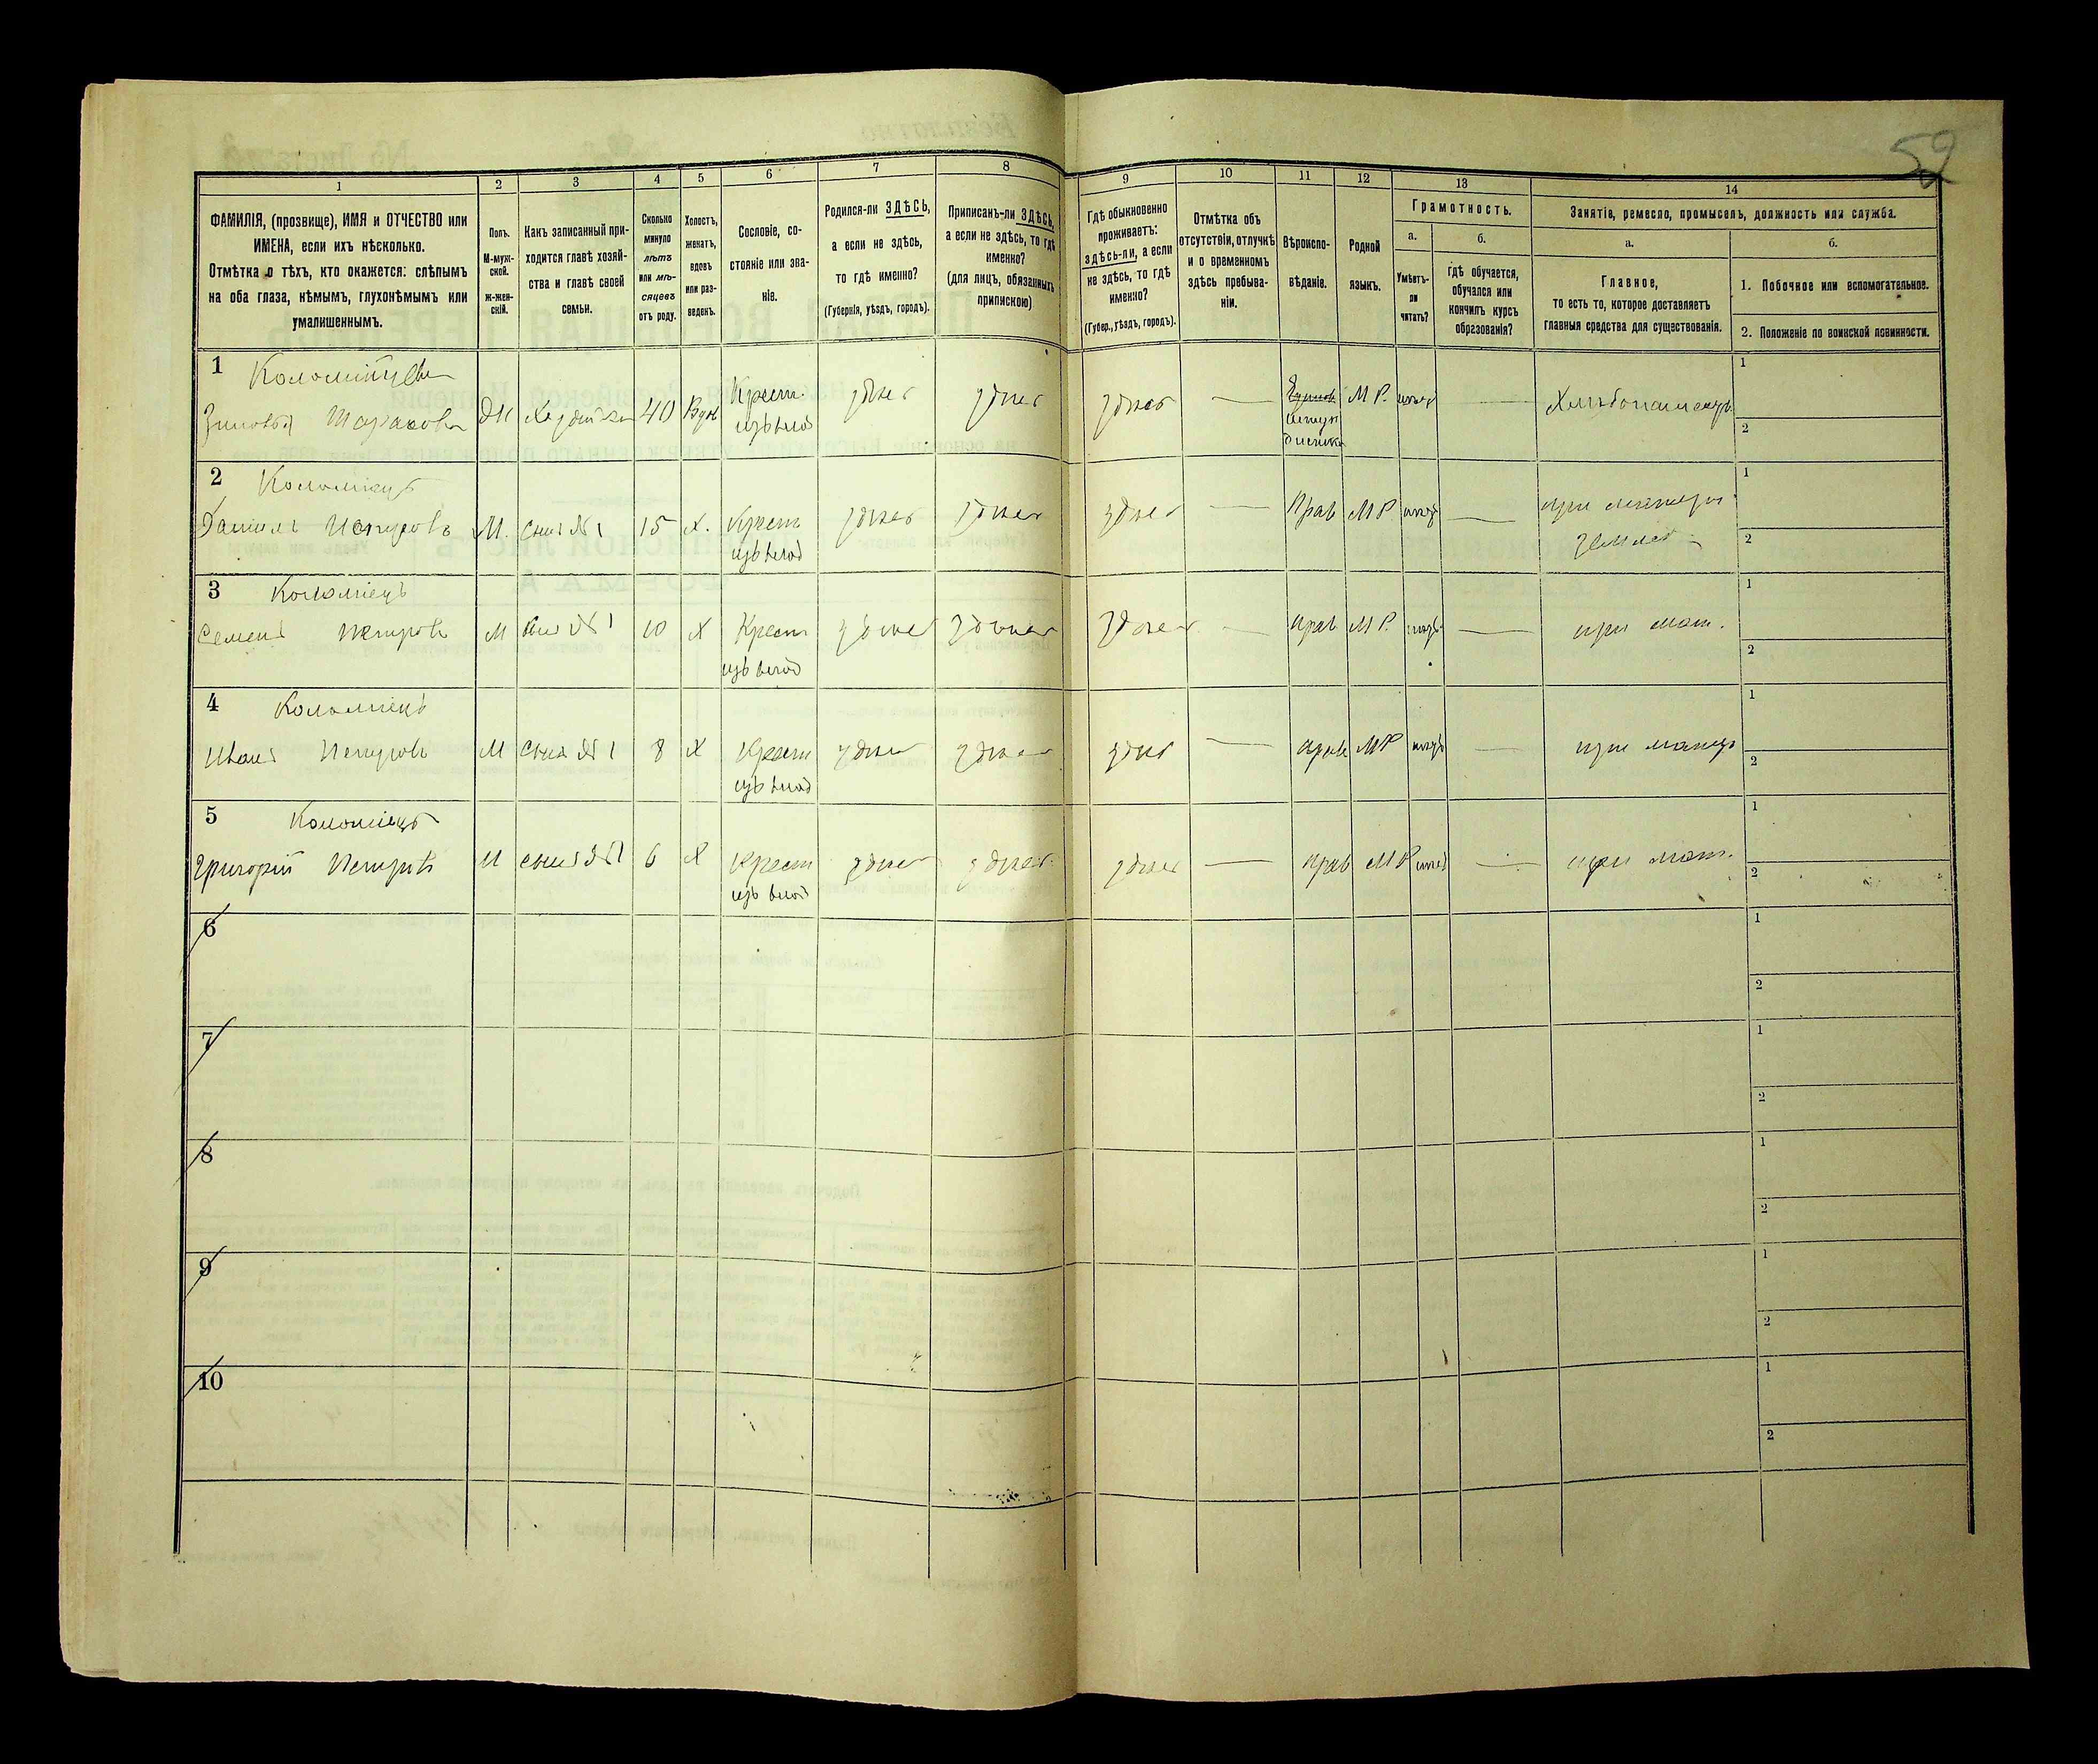 52
1
2
3
4
5
6
7
8
9
10
11
12
13
14
ФАМИЛІЯ, (прозвище), ИМЯ и ОТЧЕСТВО или
ИМЕНА, если ихъ нѣсколько.
Отмѣтка о тѣхъ, кто окажется: слѣпымъ
на оба глаза, нѣмымъ, глухонѣмымъ или
умалишеннымъ.
Полъ.
М-муж-
ской.
ж-жен-
скій.
Какъ записанный при-
ходится главѣ хозяй-
ства и главѣ своей
семьи.
Сколько
минуло
лѣтъ
или мѣ-
сяцевъ
отъ роду.
Холостъ,
женатъ,
вдовъ
или раз-
веденъ.
Сословіе, со-
стояніе или зва-
ніе.
Родился-ли ЗДѢСЬ,
а если не здѣсь,
то гдѣ именно?
(Губернія, уѣздъ, городъ).
Приписанъ-ли ЗДѢСЬ,
а если не здѣсь, то гдѣ
именно?
(для лицъ, обязанныхъ
припискою)
Гдѣ обыкновенно
проживаетъ:
здѣсь-ли, а если
не здѣсь, то гдѣ
именно?
(Губер., уѣздъ, городъ).
Отмѣтка объ
отсутствіи, отлучкѣ
и о временномъ
здѣсь пребыва-
ніи.
Вѣроиспо-
вѣданіе.
Родной
языкъ.
Грамотность.
а.
Умѣетъ-
ли
читать?
б.
гдѣ обучается,
обучался или
кончилъ курсъ
образованія?
Занятіе, ремесло, промыселъ, должность или служба.
а.
Главное,
то есть то, которое доставляетъ
главныя средства для существованія.
б.
1. Побочное или вспомогательное.
2. Положеніе по воинской повинности.
1
Зиновья Тарасова Ж 40 Вдов Крест. здѣсь здѣсь здѣсь — М Р. — 
1
2
2 Коломіецъ
Данило Петровъ М. Сынъ №1 15 Х. Крест здѣсь здѣсь здѣсь — Прав М Р — при матери
1
2
3 Коломіецъ
Семенъ Петровъ М Сынъ №1 10 Х Крест здѣсь здѣсь здѣсь — Прав М Р. — при мат.
1
2
4 Коломіецъ
Иванъ Петровъ М Сынъ №1 8 Х Крест здѣсь здѣсь здѣсь — Прав М Р — при матер
1
2
5 Коломіецъ
Григорій Петровъ М Сынъ №1 6 Х Крест здѣсь здѣсь здѣсь — Прав М Р — при мат.
1
2
6
1
2
7
1
2
8
1
2
9
1
2
10
1
2